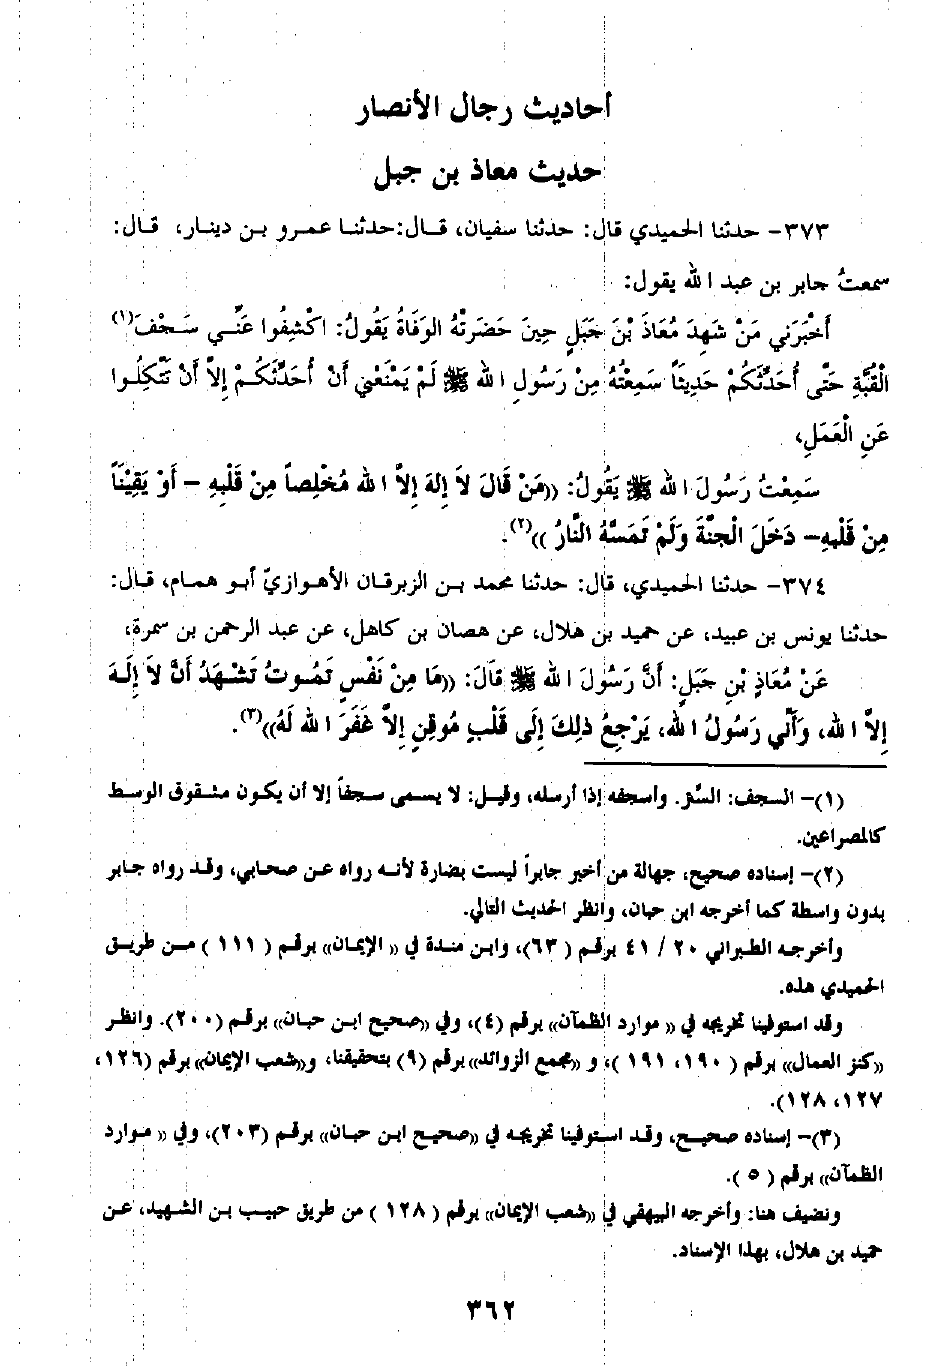 أحاديث رجال الأنصار
حديث معاذ بن جبل
٣٧٣- حدثنا الحميدي قال: حدثنا سفيان، قال:حدثنا عمرو بن دينار، قال:
سمعتُ جابر بن عبد الله يقول:
أَخْبَرَني مَنْ شَهِدَ مُعَاذَ بْنَ جَبَلٍ حِينَ حَضَرَتْهُ الوَفَاةُ يَقُولُ: اكْشِفُوا عَنِّي سَجْفَ(١)
الْقُبَّةِ حَتَّى أُحَدِّثَكُمْ حَدِيثاً سَمِعْتُهُ مِنْ رَسُولِ الله ﷺ لَمْ يَمْنَعْنِي أَنْ أُحَدِّثَكُمْ إِلاَّ أَنْ تَتَّكِلُوا
عَنِ الْعَمَلِ،
سَمِعْتُ رَسُولَ الله ﷺ يَقُولُ: ((مَنْ قَالَ لاَ إِلهَ إِلاَّ الله مُخْلِصاً مِنْ قَلْبِهِ – أَوْ يَقِيْنَاً
مِنْ قَلْبِهِ– دَخَلَ الْجَنَّةَ وَلَمْ تَمَسَّهُ النَّارُ ))(٢).
٣٧٤- حدثنا الحميدي، قال: حدثنا محمد بن الزبرقان الأهوازيّ أبو همام، قال:
حدثنا يونس بن عبيد، عن حميد بن هلال، عن هصان بن كاهل، عن عبد الرحمن بن سمرة،
عَنْ مُعَاذٍ بْنِ جَبَلٍ: أَنَّ رَسُولَ الله ﷺ قَالَ: ((مَا مِنْ نَفْسٍ تَمُوتُ تَشْهَدُ أَنَّ لاَ إِلَهَ
إِلاَّ الله، وَأَنِّي رَسُولُ الله، يَرْجِعُ ذلِكَ إِلَى قَلْبٍ مُوقِنٍ إِلاَّ غَفَرَ الله لَهُ))(٣).
(١)– السجف: السِّتر. وأسجفه إذا أرسله، وقيل: لا يسمى سجفاً إلا أن يكون مشقوق الوسط
كالمصراعين.
(٢)– إسناده صحيح، جهالة من أخبر جابراً ليست بضارة لأنه رواه عن صحابي، وقد رواه جابر
بدون واسطة كما أخرجه ابن حبان، وانظر الحديث التالي.
وأخرجه الطبراني ٢٠ / ٤١ برقم ( ٦٣)، وابن مندة في (( الإيمان)) برقم ( ١١١ ) من طريق
الحميدي هذه.
وقد استوفينا تخريجه في (( موارد الظمآن)) برقم (٤)، وفي ((صحيح ابن حبان)) برقم (٢٠٠). وانظر
((كنز العمال)) برقم ( ١٩٠، ١٩١ )، و ((مجمع الزوائد)) برقم (٩) بتحقيقنا، و((شعب الإيمان)) برقم (١٢٦،
١٢٧، ١٢٨).
(٣)– إسناده صحيح، وقد استوفينا تخريجه في ((صحيح ابن حبان)) برقم (٢٠٣)، وفي (( موارد
الظمآن)) برقم ( ٥ ).
ونضيف هنا: وأخرجه البيهقي في ((شعب الإيمان)) برقم ( ١٢٨ ) من طريق حبيب بن الشهيد، عن
حميد بن هلال، بهذا الإسناد.
٣٦٢